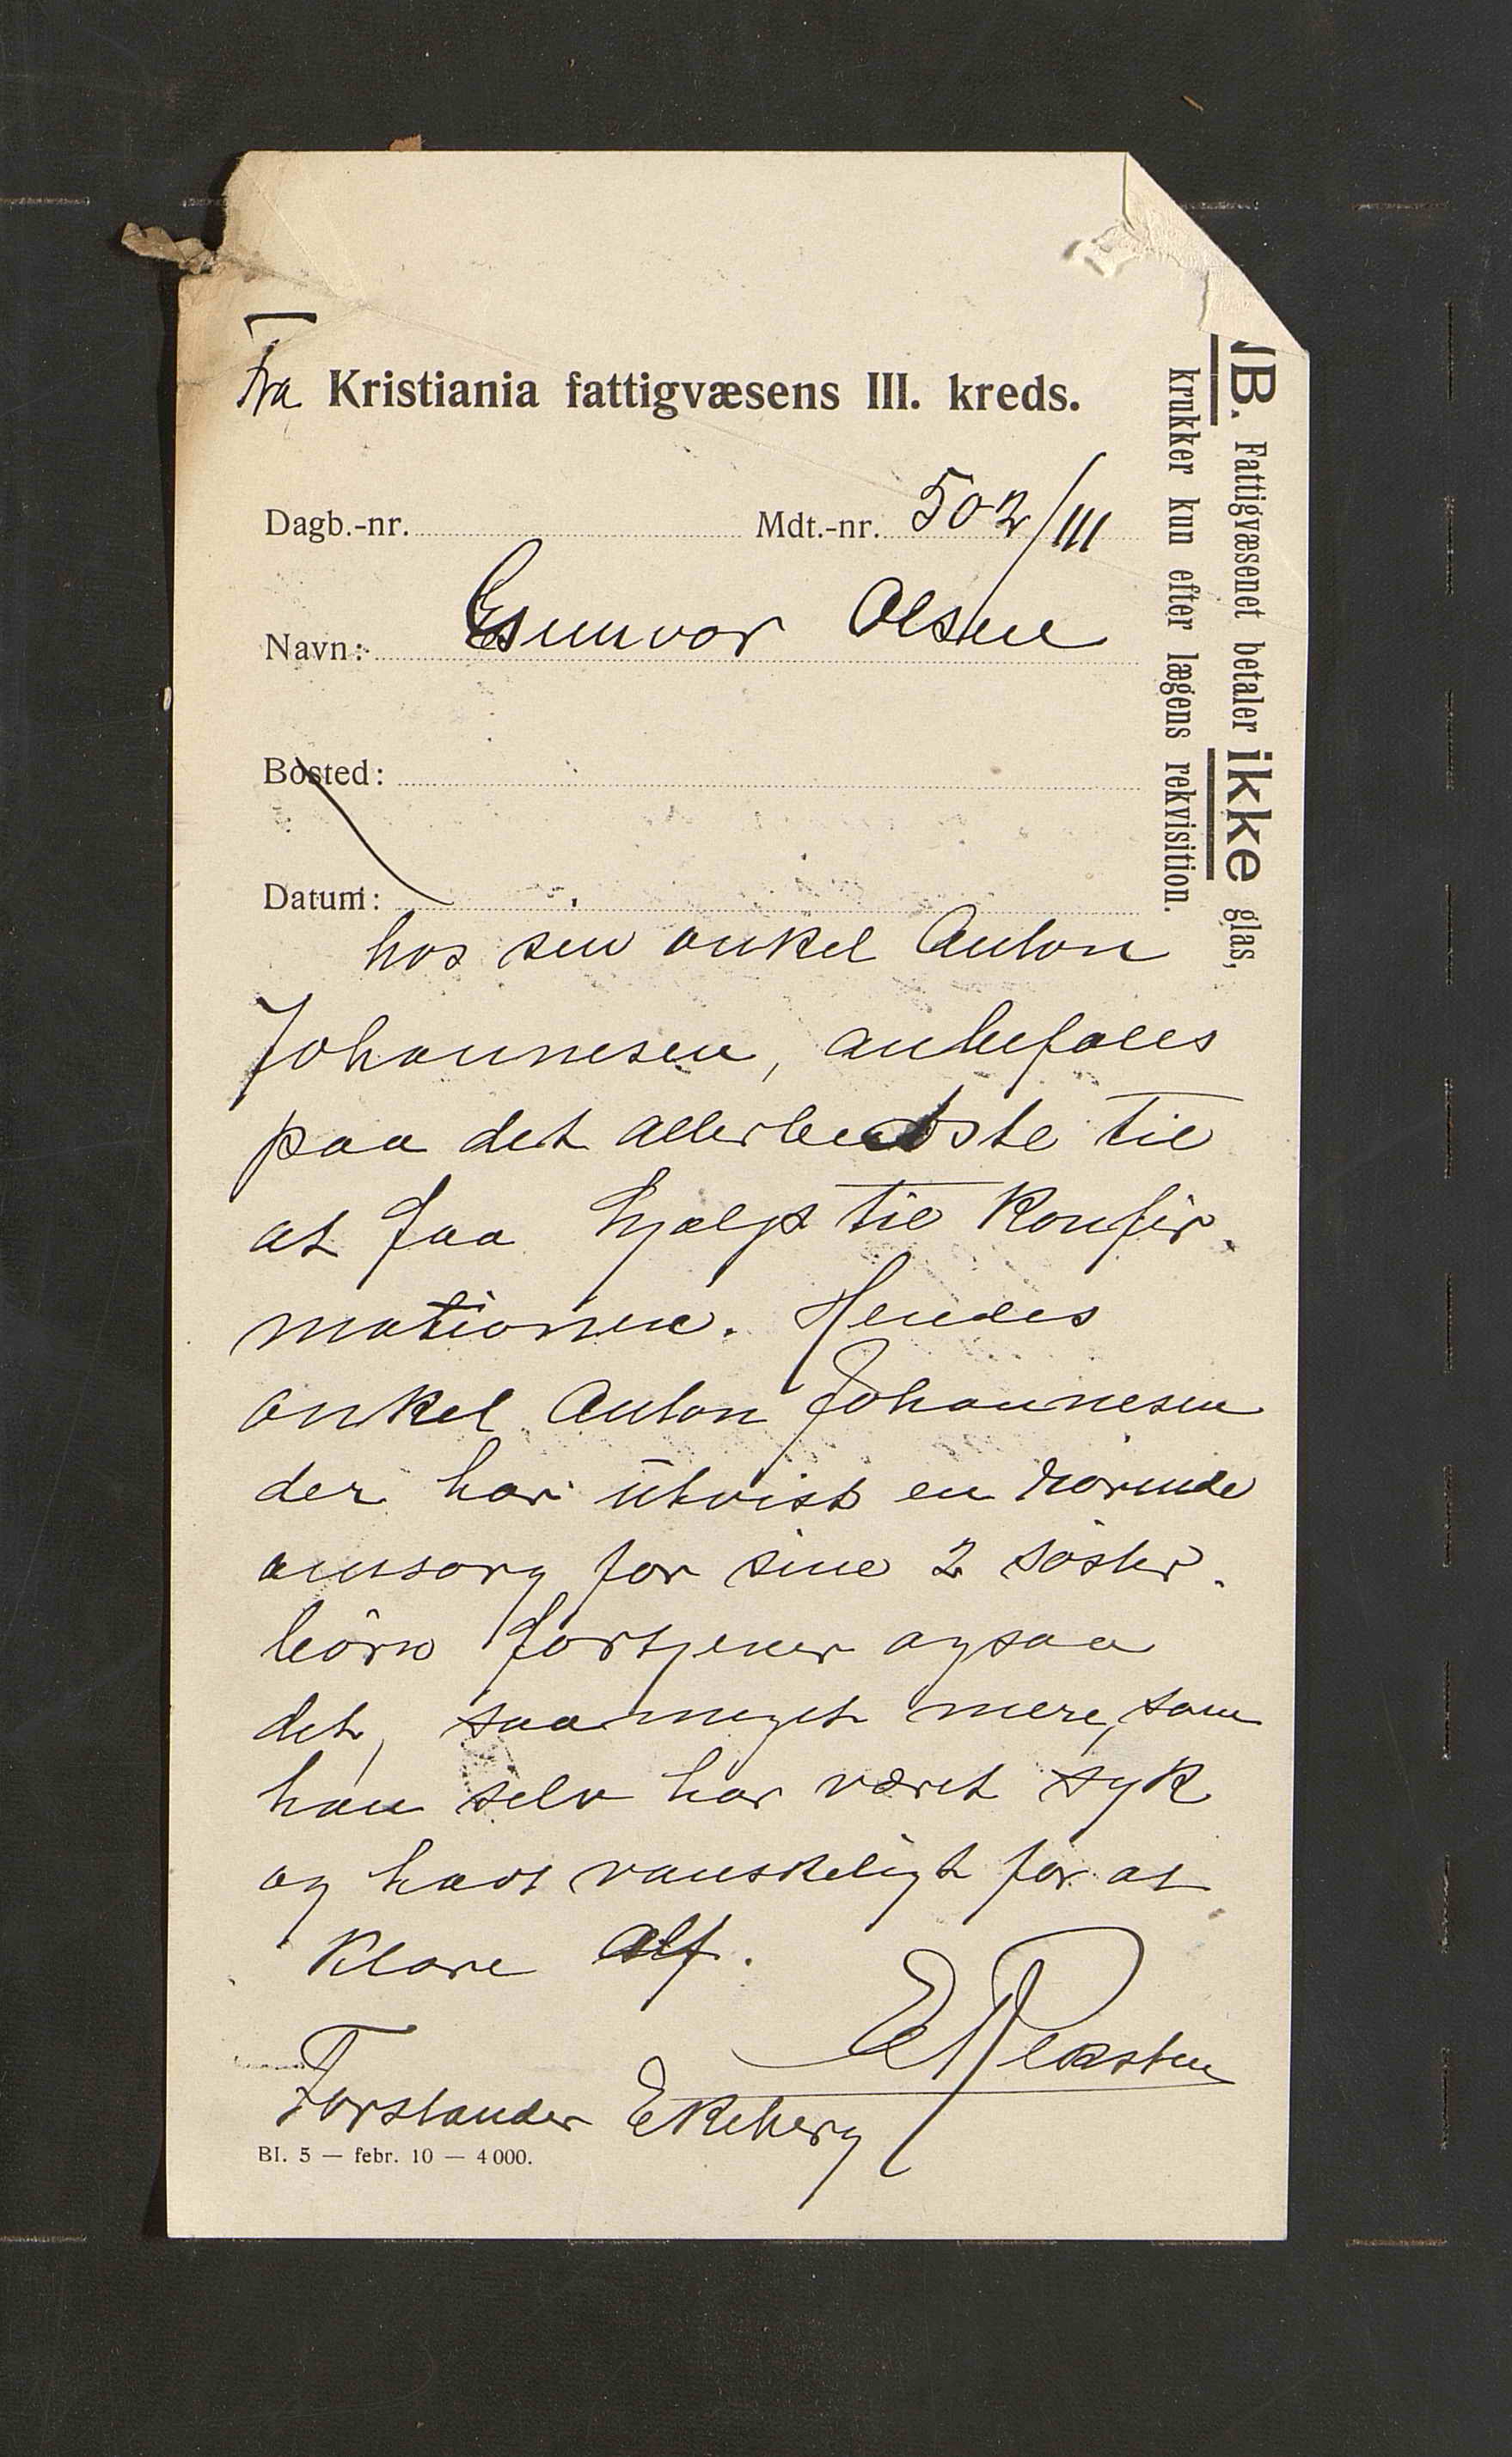 Fra Kristiania fattigvæsens III. kreds.
Dagb.-nr. Mdt.-nr. 502/III
Navn: Gunvor Olsen
Bosted:
Datum:
hos sin onkel Anton
Johannesen, anbefales
paa det allerbedste til
at faa hjælp til Konfir-
mationen. Hendes
onkel Anton Johannesen
der har utvist en rörende
omsorg for sine 2 söster-
börn fortjener ogsaa
det, saa meget mere, som
han selv har været syk
og havt vanskeligt for at
klare
Forstander Ekeberg
Bl. 5 — febr. 10 — 4000.
NB. Fattigvæsenet betaler ikke glas,
krukker kun efter lægens rekvisition.